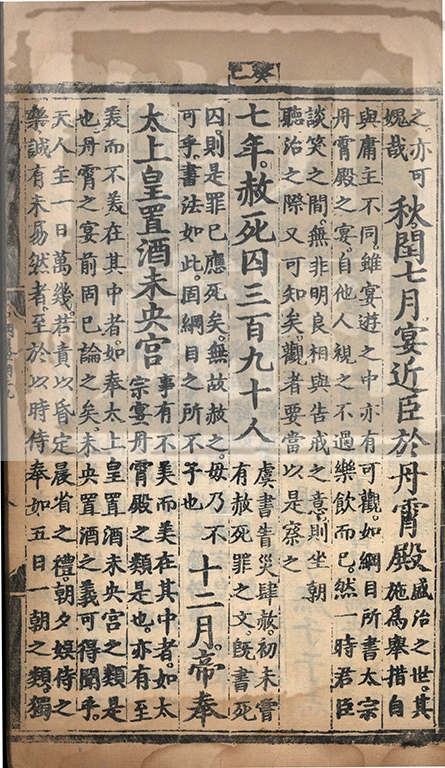 癸巳
之亦可
媿哉
秋閏七月宴近臣於丹霄殿
盛治之世。其
施為舉措自
與庸主不同。雖宴遊之中亦有可觀。如綱目所書太宗
丹霄殿之宴。自他人視之不過樂飲而已。然一時君臣
談笑之間。無非明良相與告戒之意。則坐朝
聽治之際又可知矣。觀者要當以是察之
七年。赦死囚三百九十人
虞書眚災肆赦。初未嘗
有赦死罪之文。旣書死
囚。則是罪已應死矣。無故赦之。毋乃不
可乎。書法如此。固綱目之所不予也
十二月。帝奉
太上皇置酒未央宮
事有不美而美在其中者。如太
宗宴丹霄殿之類是也。亦有至
美而不美在其中者。如奉太上皇置酒未央宮之類是
也。丹霄之宴前固已論之矣。未央置酒之義可得聞乎。
天人主一日萬幾。若責以昏定晨省之禮。朝夕娛侍之
樂。誠有未易然者。至於以時侍奉如五日一朝之類。獨